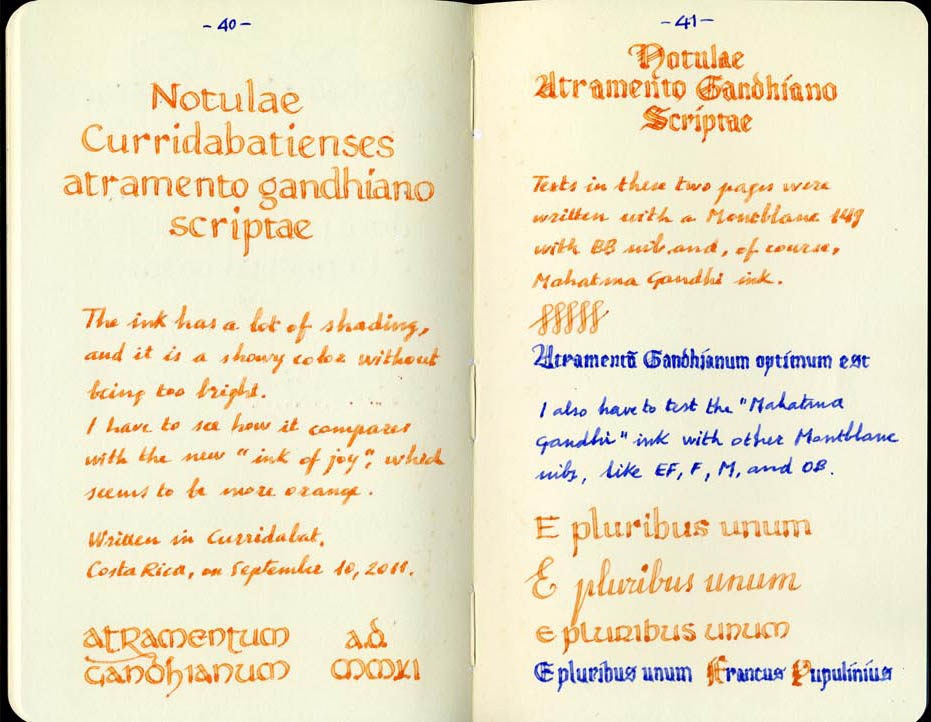 -40-
Notulae
Curridabatienses
atramento gandhiano
scriptae
The ink has a lot of shading,
and it is a showy color without
being too bright.
I have to see how it compares
with the new "ink of joy", which
seems to be more orange.
Written in Curridabat,
Costa Rica, on September 10, 2011.
atramentum a.d.
gandhianum MMXI
-41-
Notulae
Atramento Gandhiano
Scriptae
Texts in these two pages were
written with a Montblanc 149
with BB nib and, of course,
Mahatma Gandhi ink.
Atramentū Gandhianum optimum est
I also have to test the "Mahatma
Gandhi" ink with other Montblanc
nibs, like EF, F, M, and OB.
E pluribus unum
E pluribus unum
e pluribus unum
E pluribus unum Francus Pupulinius